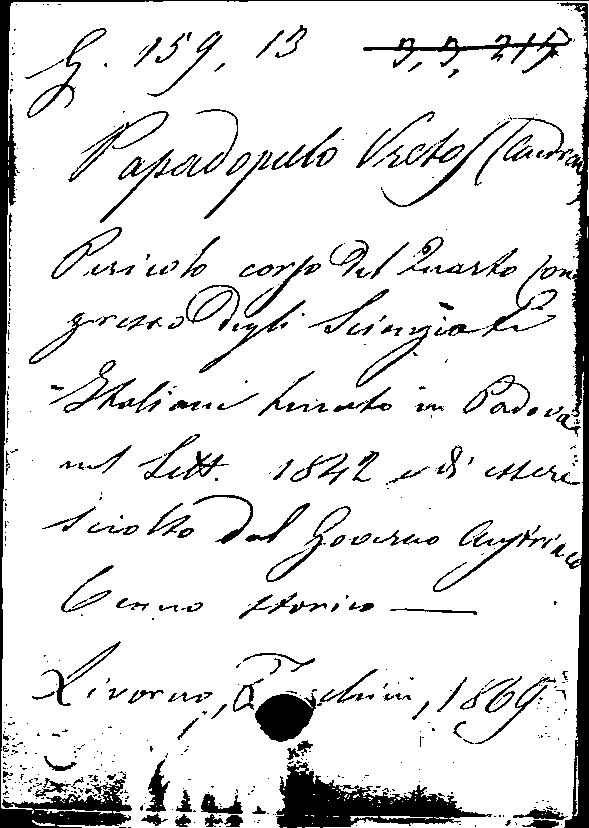 G. 159, 13 3, 3, 215
Papadopulo Vreto (Andrea
Pericolo corso del Quarto Con
gresso degli Scienziati
Italiani tenuto in Padova
nel Sett. 1842 e di essere
sciolto dal Governo Austriaco
Cenno storico —
Livorno, 1869